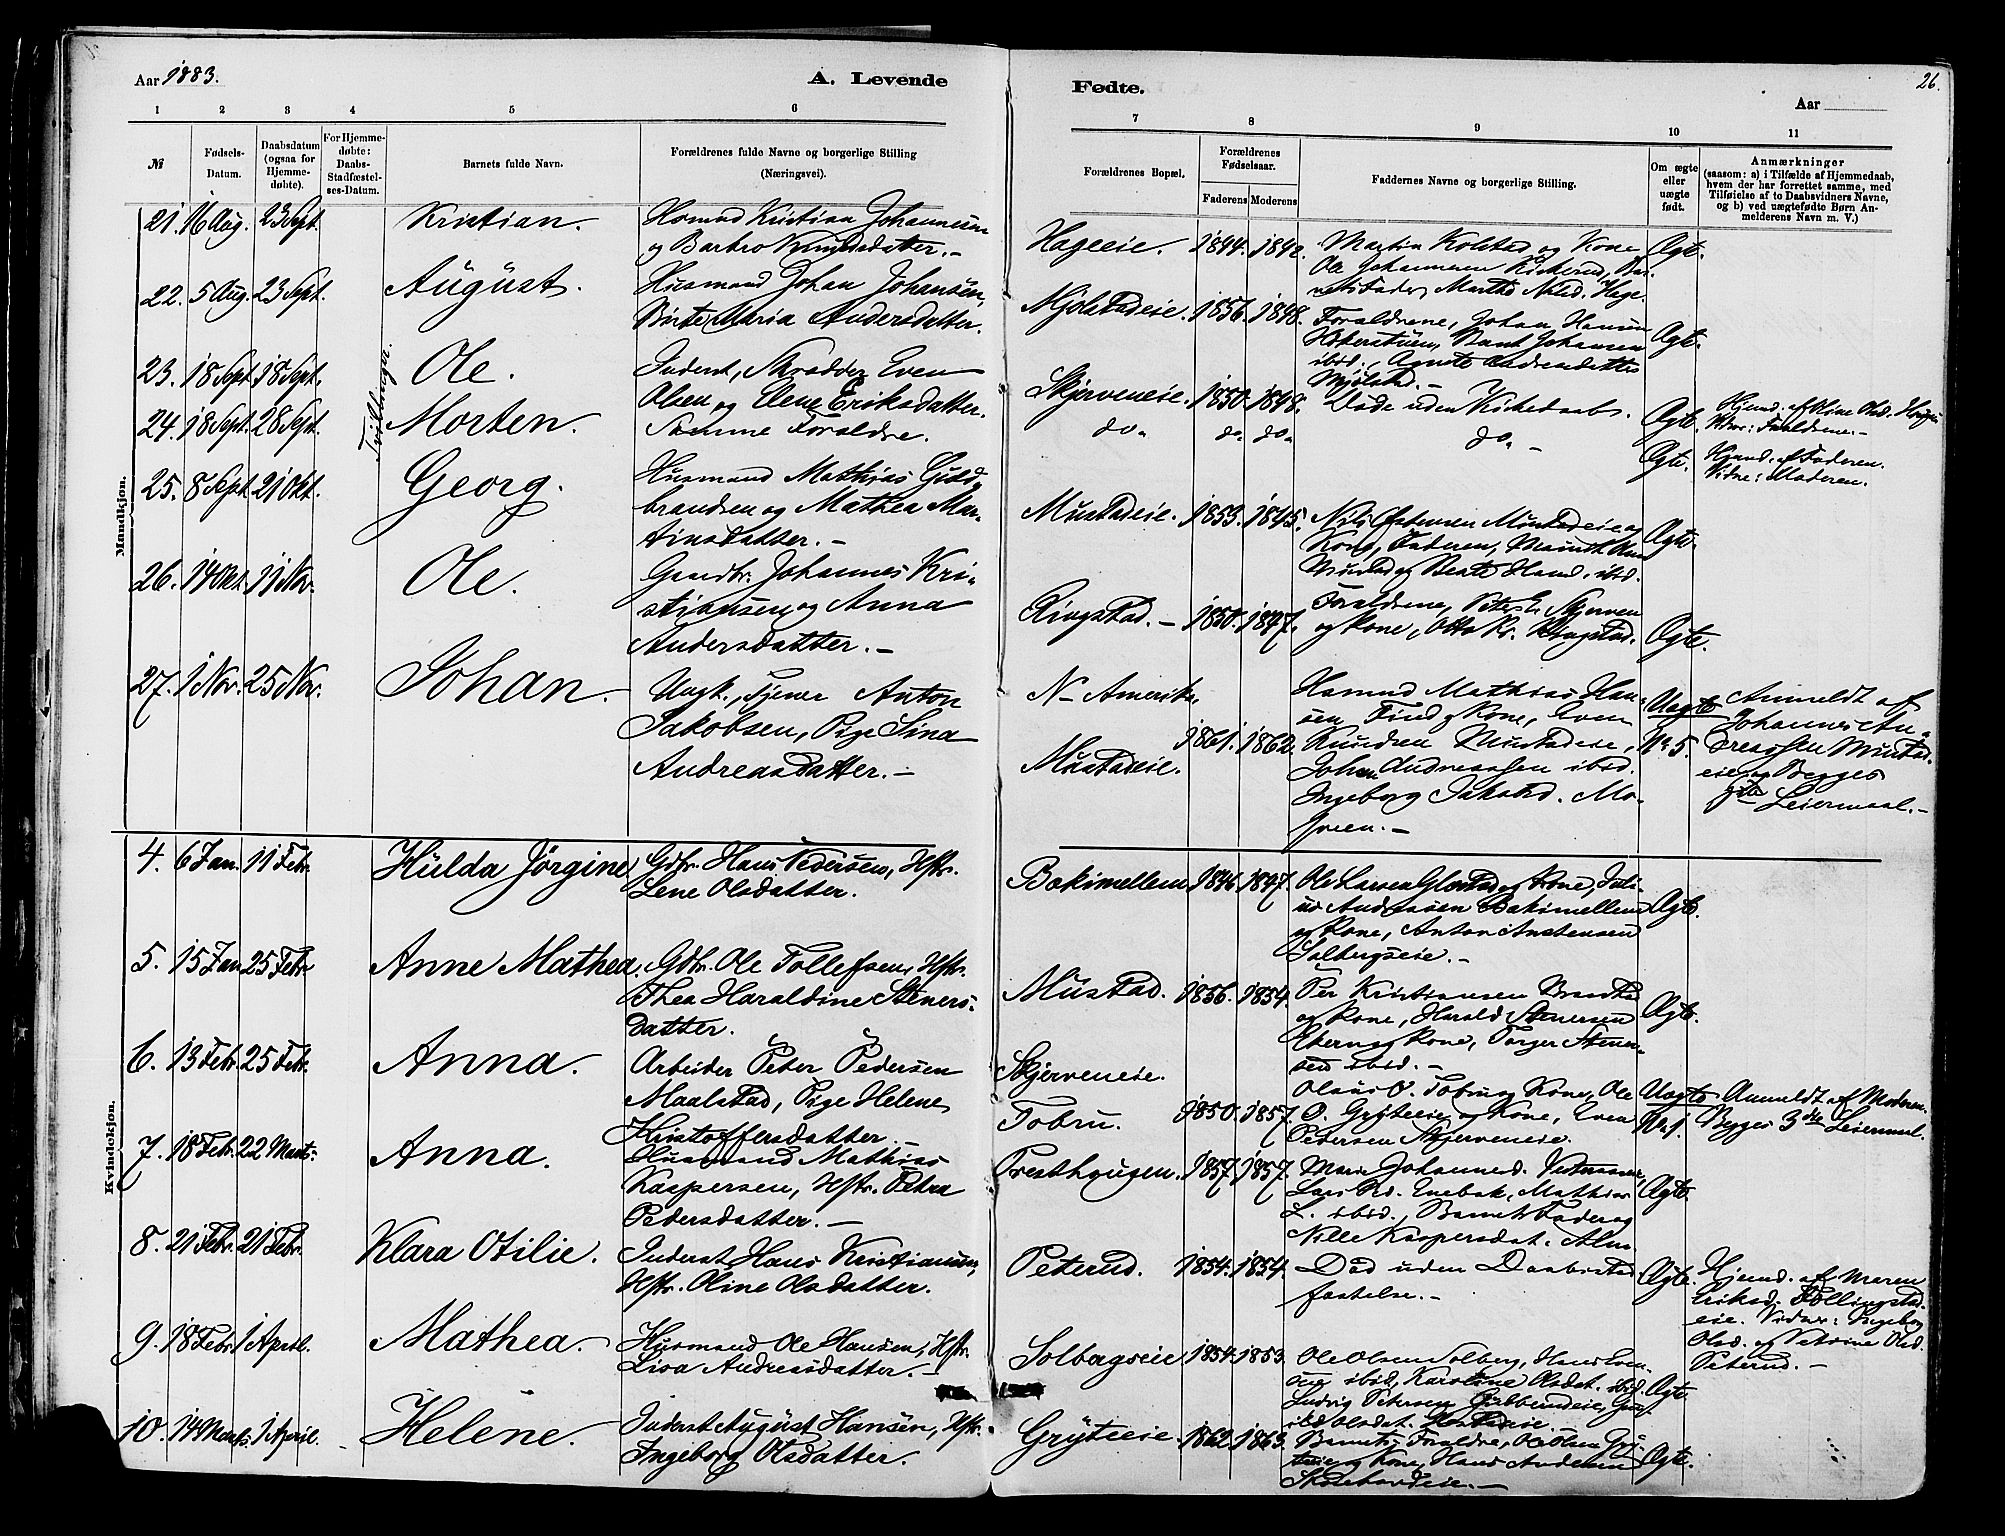 Aar 1883.
A. Levende
Fødte.
Aar
26.
1 2 3 4 5 6
7 8 9 10 11
№
Fødsels-
Datum.
Daabsdatum
(ogsaa for
Hjemme-
døbte).
For Hjemme-
døbte:
Daabs-
Stadfæstel-
ses-Datum.
Barnets fulde Navn.
Forældrenes fulde Navne og borgerlige Stilling
(Næringsvei).
Forældrenes Bopæl.
Forældrenes
Fødselsaar.
Faderens Moderens
Faddernes Navne og borgerlige Stilling.
Om ægte
eller
uægte
født.
Anmærkninger
(saasom: a) i Tilfælde af Hjemmedaab,
hvem der har forrettet samme, med
Tilføielse af to Daabsvidners Navne,
og b) ved uægtefødte Børn An-
melderens Navn m. V.)
Mandkjøn.
21. 16 Aug. 23 Sept. Kristian. Husmand Kristian Johannesen
og Barbro Knudsdatter.-
Hageeie. 1844. 1842. Martin Kolstad og Kone
Ole Johannesen
Ægte.
22. 5 Aug. 23 Sept. August. Husmand Johan Johansen,
Birte Maria Andersdatter.
Mjölstadeie. 1856. 1848. Forældrene, Johan Hansen
Johansen
ibid., Agnete Andreasdatter
Mjölstad.-
Ægte.
Tvillinger.
23. 18 Sept. 18 Sept. Ole. Inderst, Skrædder Even
Olsen og Elene Eriksdatter.
Skjerveneie. 1850. 1848. Døde uden Kirkedaab.
Ægte. Hjemd. af Oline Olsd.
Vidner: Forældrene.-
24. 18 Sept. 28 Sept. Morten. Samme Forældre.
do. do. do. do.-
Ægte. Hjemd. af Faderen.
Vidne: Moderen.
25. 8 Sept. 21 Okt. Georg. Husmand Mathias Guld-
brandsen og Mathea Mar-
tinsdatter.-
Mustadeie. 1853. 1845. Nils Mustadeie og
Kone, Faderen,
Mustad og Beate Hansd. ibid.
Ægte.
26. 14 Okt. 11 Nov. Ole. Gaardbr. Johannes Kri-
stiansen og Anna
Andersdatter.-
Ringstad.- 1850. 1847. Forældrene, Peter E. Skjerven
og Kone, Otto Kr. Ringstad.
Ægte.
27. 1 Nov. 25 Nov. Johan. Ungk., Tjener Anton
Jakobsen, Pige Sina
Andreasdatter.-
N-Amerika.
Mustadeie.
1861. 1862. Husmd Mathias Han-
sen Find og Kone, Even
Knudsen Mustadeie,
Johan Andreassen ibid.
Ingeborg Jakobsd. Mo-
sveen.-
Uægte
No 5.
Anmeldt af
Johannes An-
dreassen Mustad-
eie. Begges
Leiermaal.-
Kvindekjøn.
4. 6 Jan. 11 Febr. Hulda Jørgine Gdbr. Hans Pedersen, Hstr.
Lene Olsdatter.
Bakimellem 1846. 1847. Ole Larsen Glæstad og Kone, Juli-
us Andersen Bakimellem
og Kone, Anton Antensen
Solbergseie.-
Ægte.
5. 15 Jan. 25 Febr. Anne Mathea. Gdbr. Ole Tollefsen, Hstr.
Thea Haraldine Steners-
datter.
Mustad. 1856. 1854. Per Kristiansen Brastad
og Kone, Harald Stenersen
og Kone, Torger Stener-
sen ibid.-
Ægte.
6. 13 Febr. 25 Febr. Anna. Arbeider Peter Pedersen
Maalstad, Pige Helene
Kristoffersdatter.-
Skjerveneie.
Tobru.
1850. 1857. Olaus O. Tobru og Kone, Ole
O. Gryteeie og Kone, Even
Petersen Skjerveneie.
Uægte
No 1.
Anmeldt af Moderen.
Begges 3die Leiermaal.
7. 18 Febr. 22 Marts. Anna. Husmand Mathias
Kaspersen, Hstr. Petra
Pedersdatter.-
Presthaugen. 1857. 1857. Marie Johannesd.
Enebak, Mathias
L. ibid., Barnets Fader og
Nille Kaspersdat.
Ægte.
8. 21 Febr. 21 Febr. Klara Otilie. Inderst Hans Kristiansen,
Hstr. Oline Olsdatter.
Peterud. 1854. 1854. Død uden Daabsstad-
fæstelse.-
Ægte. Hjemd. af Maren
Eriksd. Föllingstad-
eie. Vidner: Ingeborg
Olsd. og Petrine Olsd.
Peterud.-
9. 18 Febr. 1 April. Mathea. Husmand Ole Hansen, Hstr.
Lisa Andreasdatter.-
Solbergseie 1854. 1853. Ole Olsen Solberg, Hans Even-
sen ibid, Karoline Olsdat. ibid.
Ludvig Petersen
Olsdat.
Ægte.
10. 14 Marts. 1 April. Helene. Inderst August Hansen, Hstr.
Ingeborg Olsdatter.
Gryteeie. 1862. 1863. Barnets Forældre, Ole Olsen Gry-
teeie og Kone, Hans Andersen
Ægte.